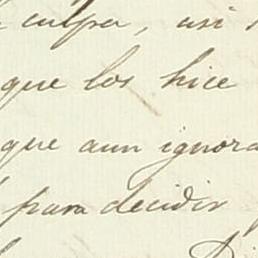 culpa, asi
que los hice
que aun ignora
para decidir